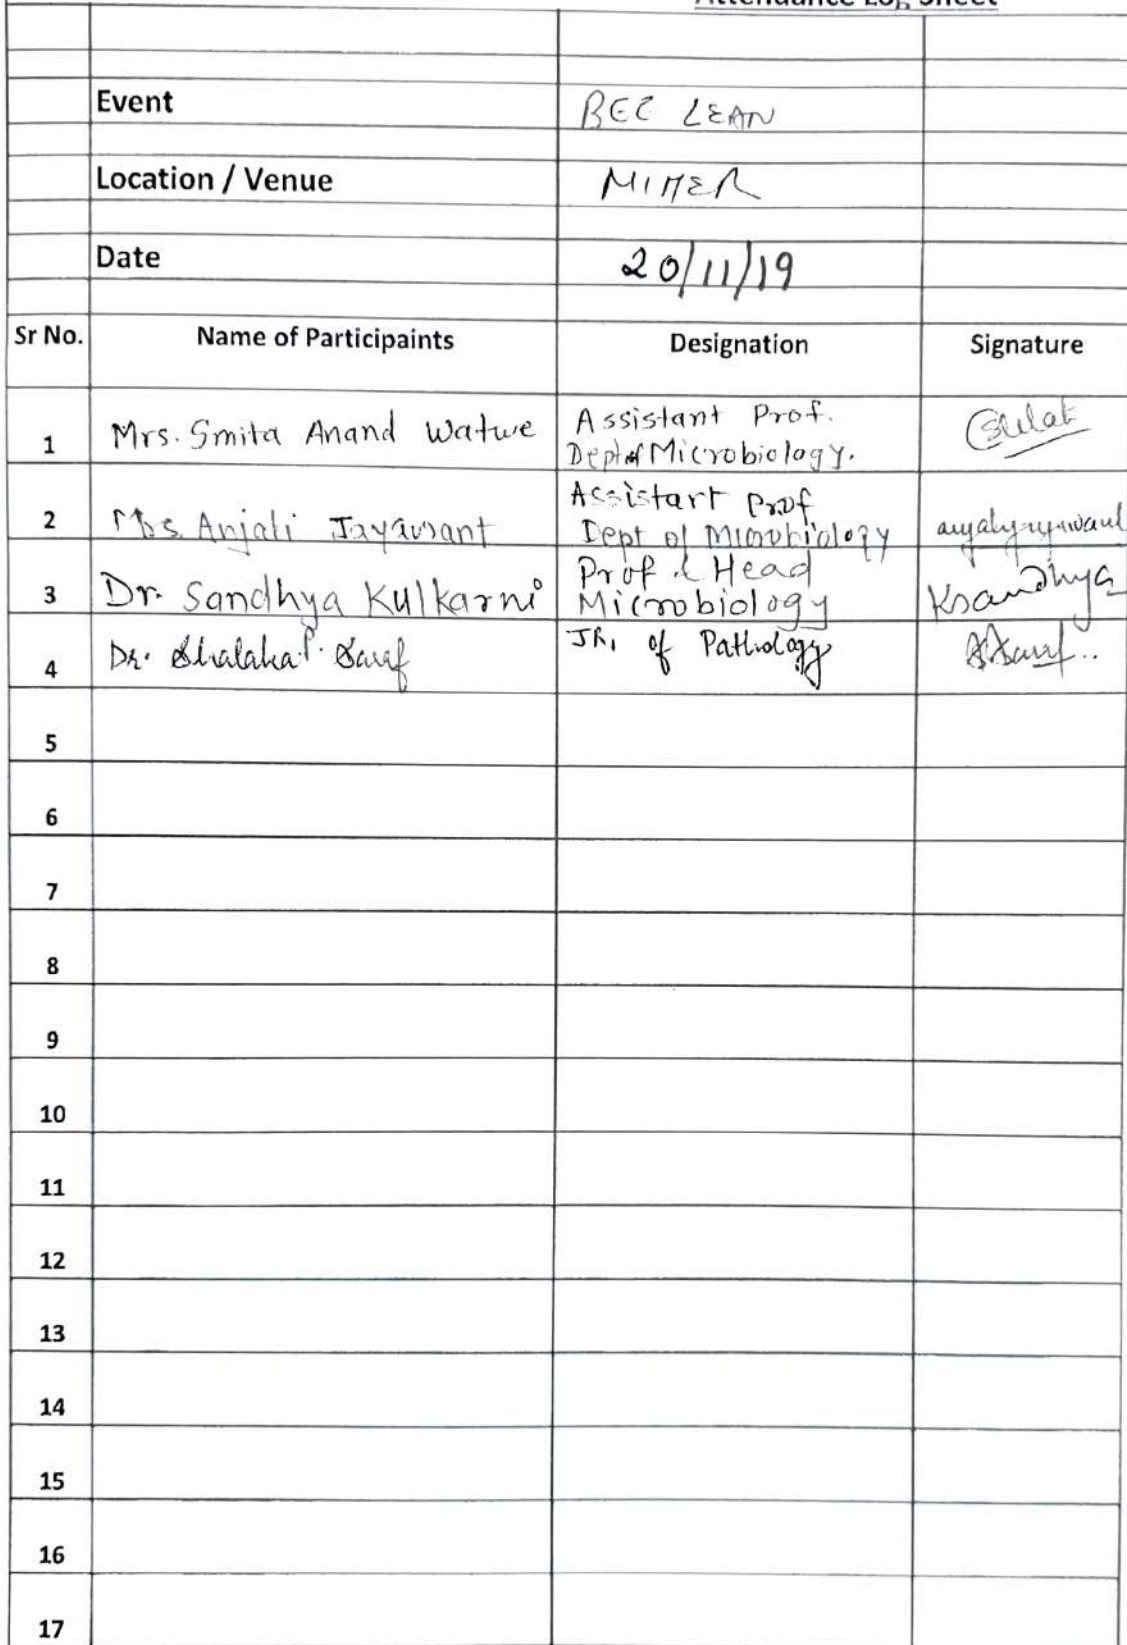 Attendance Log Sheet
Event BEC LEAN
Location / Venue MIMER
Date 20/11/19
Sr No. Name of Participaints Designation Signature
1 Mrs. Smita Anand Watwe Assistant Prof.
Dept of Microbiology.
2 Mrs. Anjali Jayawant Assistant Prof
Dept of Microbiology
3 Dr. Sandhya Kulkarni Prof & Head
Microbiology Ksandhya
4 Dr. Shalaka P. Saraf JR, of Pathology
5
6
7
8
9
10
11
12
13
14
15
16
17